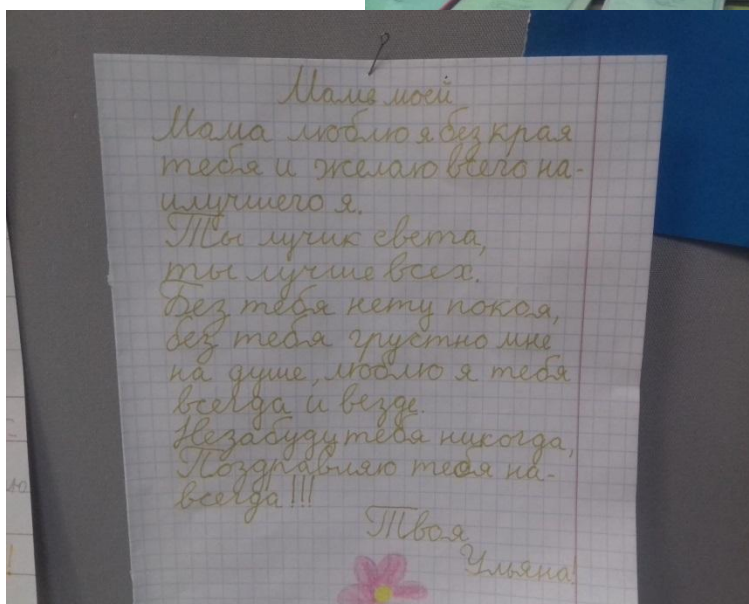 Маме моей
Мама люблю я без края
тебя и желаю всего на-
илучшего я.
Ты лучик света,
ты лучше всех.
Без тебя нету покоя,
без тебя грустно мне
на душе, люблю я тебя
всегда и везде.
Незабуду тебя никогда,
Поздравляю тебя на-
всегда!!!
Твоя
Ульяна!